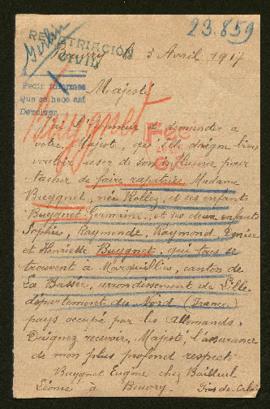 23.859
REPATRIACIÓN
CIVIL
Berlin
3 Avril 1917
Pedir informes
Que se hace así
Majesté
J'ai l'honneur de demander à
votre Majesté, que Elle daigne bien
vouloir user de son influence pour
tâcher de faire rapatrier Madame
Buygnet, née et ses enfants
Buygnet Germaine, et ses deux enfants
Sophie, Raymonde, Raymond,
et Henriette Buygnet, qui tous se
trouvent à Marquillies, canton de
La Bassée, arrondissement de Lille
département du Nord (France)
pays occupé par les Allemands.
Daignez recevoir, Majesté, l'assurance
de mon plus profond respect
Buygnet Eugène chez Bailleul
à Beuvry Pas-de-Calais
Buygnet